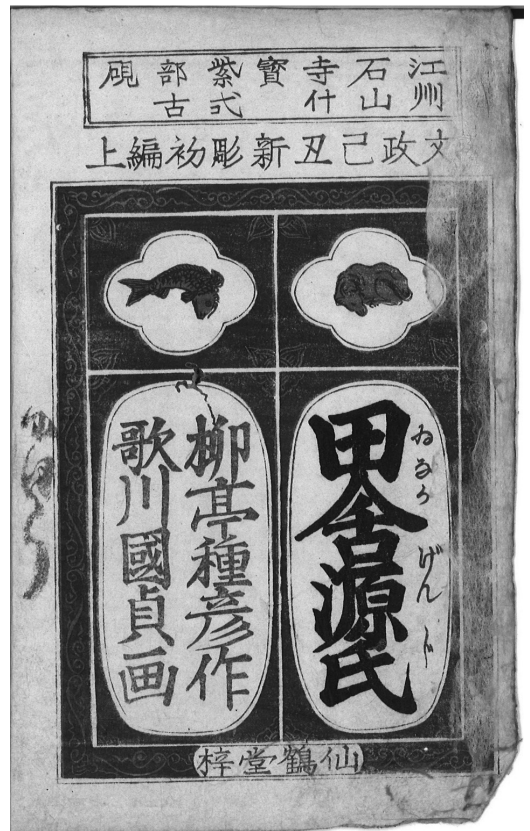 江州
石山
寺什
寳
紫式
部古
硯
文政己丑新彫初編上
田舎源氏
ゐなか げんじ
柳亭種彦作
歌川國貞画
仙鶴堂梓